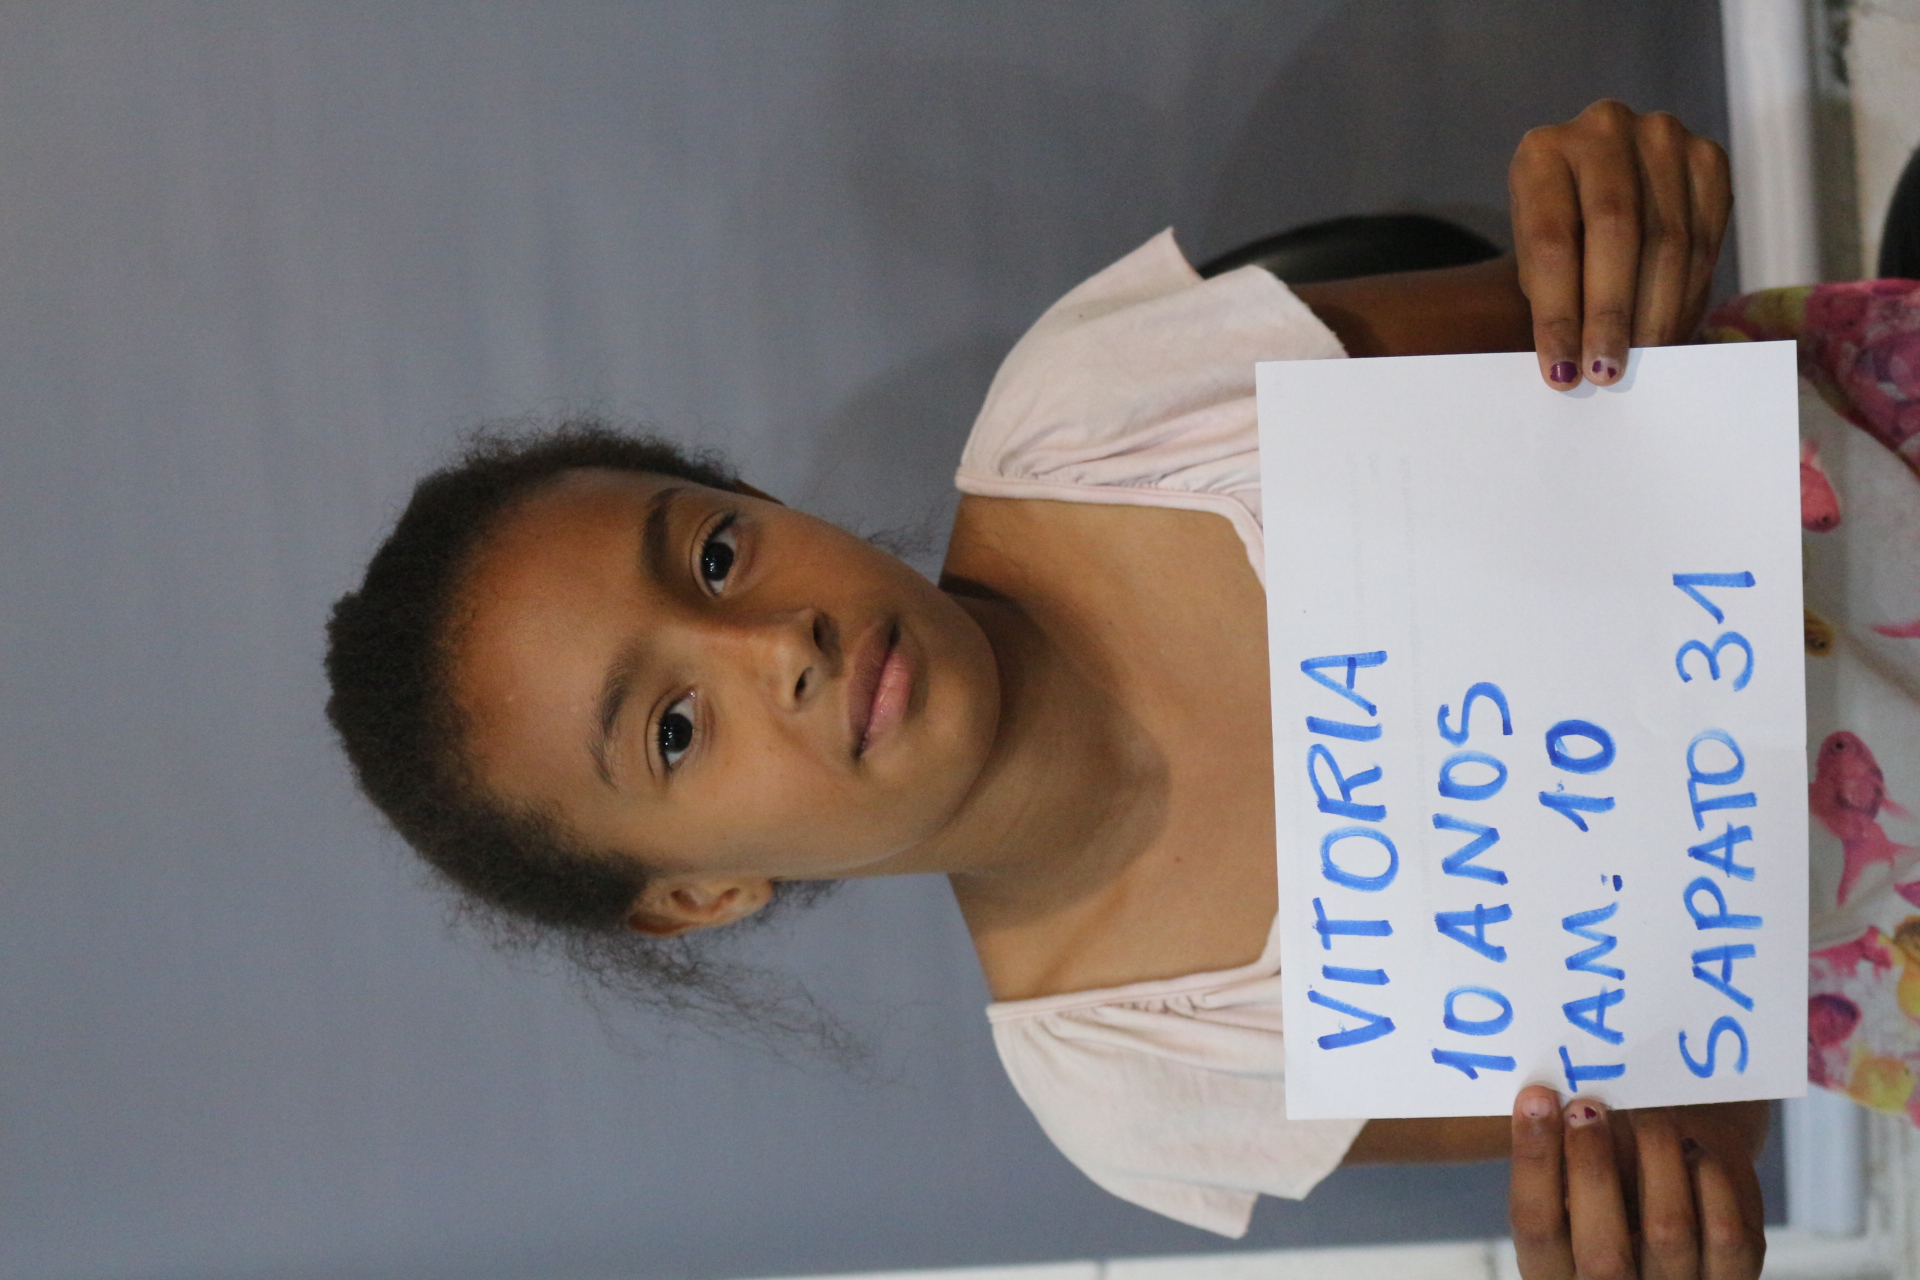 VITORIA
10 ANOS
TAM. 10
SAPATO 31